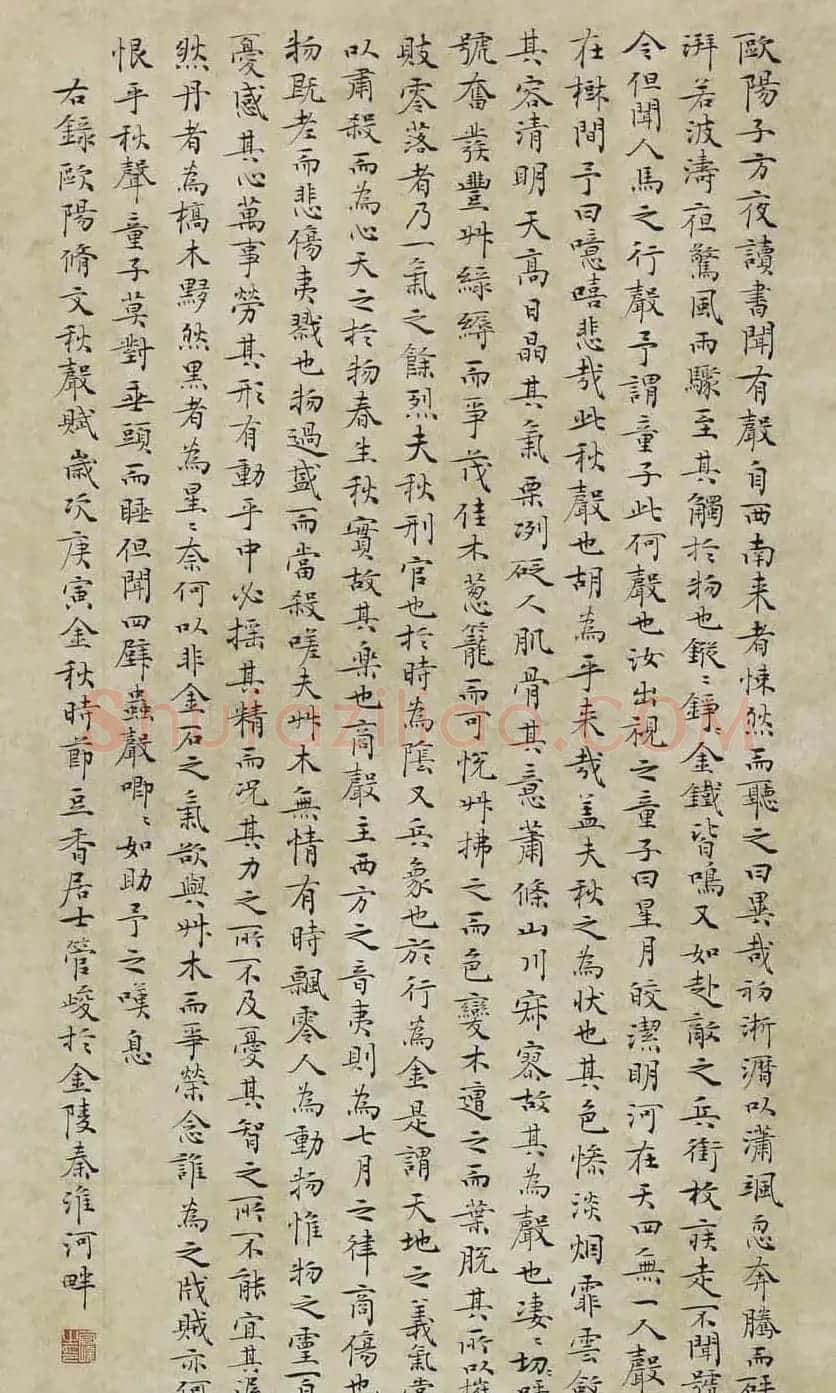 歐陽子方夜讀書聞有聲自西南来者悚然而聽之曰異哉初淅瀝以瀟颯忽奔騰而砰
湃若波濤夜驚風雨驟至其觸於物也鏦〻錚〻金鐵皆鳴又如赴敵之兵銜枚疾走不聞號
令但聞人馬之行聲予謂童子此何聲也汝出視之童子曰星月皎潔明河在天四無人聲
在樹間予曰噫嘻悲哉此秋聲也胡為乎来哉盖夫秋之為狀也其色慘淡烟霏雲斂
其容清明天高日晶其氣栗冽砭人肌骨其意蕭條山川寂寥故其為聲也淒〻切〻
號奮發豐艸綠縟而爭茂佳木蔥籠而可悅艸拂之而色變木遭之而葉脫其所以摧
敗零落者乃一氣之餘烈夫秋刑官也於時為陰又兵象也於行為金是謂天地之義氣常
以肅殺而為心天之於物春生秋實故其樂也商聲主西方之音夷則為七月之律商傷也
物既老而悲傷夷戮也物過盛而當殺嗟夫艸木無情有時飄零人為動物惟物之靈百
憂感其心萬事勞其形有動乎中必搖其精而况其力之所不及憂其智之所不能宜其渥
然丹者為槁木黟然黑者為星〻奈何以非金石之氣欲與艸木而爭榮念誰為之戕賊亦何
恨乎秋聲童子莫對垂頭而睡但聞四壁蟲聲唧〻如助予之嘆息
右錄歐陽脩文秋聲賦歲次庚寅金秋時節豆香居士管峻於金陵秦淮河畔
Shufaziliao.COM